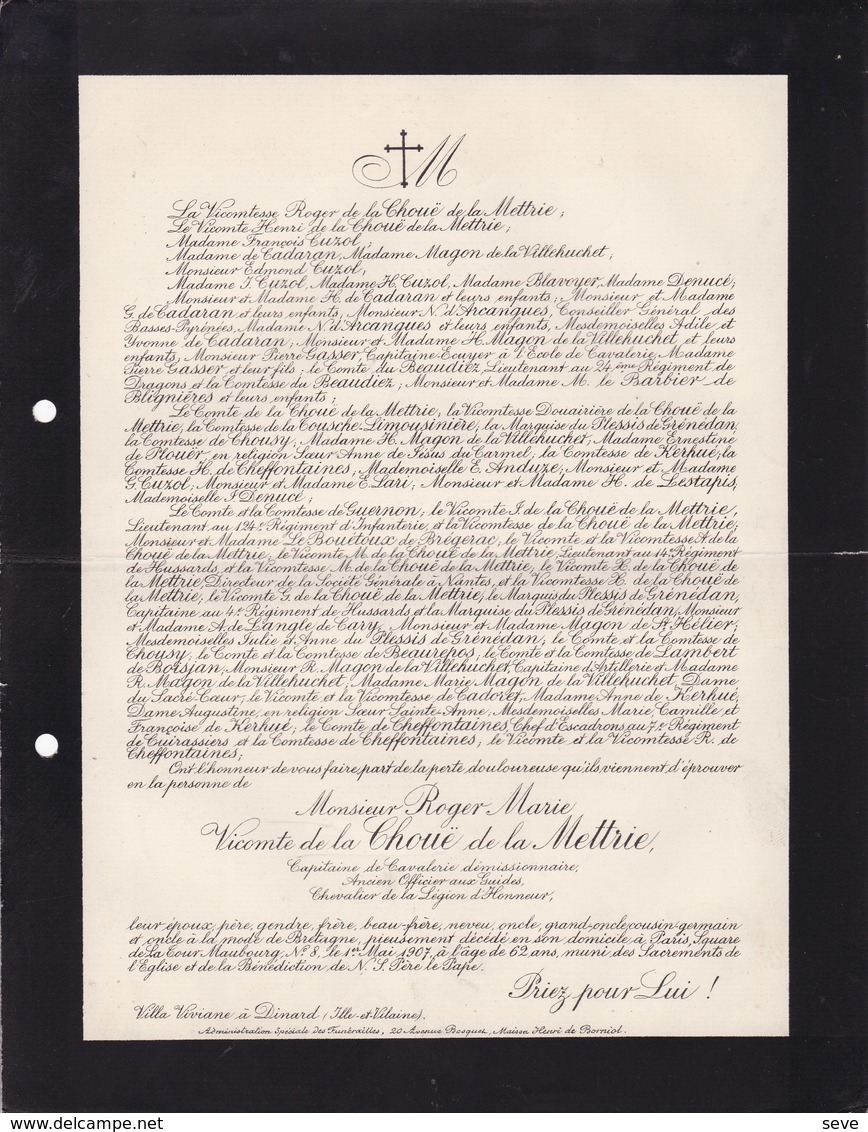 M
La Vicomtesse Roger de la Chouë de la Mettrie;
Le Vicomte Henri de la Chouë de la Mettrie;
Madame François Cuzol;
Madame de Cadaran, Madame Magon de la Villehuchet;
Monsieur Edmond Cuzol;
Madame J. Cuzol, Madame H. Cuzol, Madame Blavoyer, Madame Denucé;
Monsieur et Madame H. de Cadaran et leurs enfants; Monsieur et Madame
G. de Cadaran et leurs enfants, Monsieur N. d'Arcangues, Conseiller Général des
Basses-Pyrénées, Madame N. d'Arcangues et leurs enfants, Mesdemoiselles Adile et
Yvonne de Cadaran; Monsieur et Madame H. Magon de la Villehuchet et leurs
enfants, Monsieur Pierre Gasser, Capitaine-Ecuyer à l'Ecole de Cavalerie, Madame
Pierre Gasser et leur fils; le Comte du Beaudiez, Lieutenant au 24ème Régiment de
Dragons et la Comtesse du Beaudiez; Monsieur et Madame M. le Barbier de
Blignières et leurs enfants;
Le Comte de la Chouë de la Mettrie, la Vicomtesse Douairière de la Chouë de la
Mettrie, la Comtesse de la Tousche-Limousinière, la Marquise du Plessis de Grénédan,
la Comtesse de Chousy, Madame H. Magon de la Villehuchet, Madame Ernestine
de Plouër, en religion Sœur Anne de Jésus du Carmel, la Comtesse de Kerhué, la
Comtesse H. de Cheffontaines; Mademoiselle E. Anduze; Monsieur et Madame
G. Cuzol; Monsieur et Madame E. Lari; Monsieur et Madame H. de Lestapis,
Mademoiselle J. Denucé;
Le Comte et la Comtesse de Guernon; le Vicomte J. de la Chouë de la Mettrie,
Lieutenant au 124e Régiment d'Infanterie, et la Vicomtesse de la Chouë de la Mettrie;
Monsieur et Madame Le Bouëtoux de Brégerac, le Vicomte et la Vicomtesse A. de la
Chouë de la Mettrie; le Vicomte M. de la Chouë de la Mettrie, Lieutenant au 14e Régiment
de Hussards, et la Vicomtesse M. de la Chouë de la Mettrie; le Vicomte X. de la Chouë de
la Mettrie, Directeur de la Société Générale à Nantes, et la Vicomtesse X. de la Chouë de
la Mettrie; le Vicomte G. de la Chouë de la Mettrie, le Marquis du Plessis de Grénédan,
Capitaine au 4e Régiment de Hussards et la Marquise du Plessis de Grénédan, Monsieur
et Madame A. de Langle de Cary, Monsieur et Madame Magon de St Hélier,
Mesdemoiselles Julie et Anne du Plessis de Grénédan, le Comte et la Comtesse de
Chousy, le Comte et la Comtesse de Beaurepos, le Comte et la Comtesse de Lambert
de Boisjan, Monsieur R. Magon de la Villehuchet, Capitaine d'Artillerie et Madame
R. Magon de la Villehuchet, Madame Marie Magon de la Villehuchet, Dame
du Sacré-Cœur, le Vicomte et la Vicomtesse de Cadoret, Madame Anne de Kerhué,
Dame Augustine, en religion Sœur Sainte-Anne, Mesdemoiselles Marie, Camille et
Françoise de Kerhué; le Comte de Cheffontaines, Chef d'Escadrons au 7e Régiment
de Cuirassiers et la Comtesse de Cheffontaines; le Vicomte et la Vicomtesse R. de
Cheffontaines;
Ont l'honneur de vous faire part de la perte douloureuse qu'ils viennent d'éprouver
en la personne de
Monsieur Roger Marie
Vicomte de la Chouë de la Mettrie,
Capitaine de Cavalerie démissionnaire,
Ancien Officier aux Guides,
Chevalier de la Légion d'Honneur,
leur époux, père, gendre, frère, beau-frère, neveu, oncle, grand-oncle, cousin-germain
et oncle à la mode de Bretagne, pieusement décédé en son domicile à Paris, Square
de La Tour Maubourg, No 8, le 1er Mai 1907, à l'âge de 62 ans, muni des Sacrements de
l'Eglise et de la Bénédiction de N. S. Père le Pape.
Priez pour Lui !
Villa Viviane à Dinard (Ille-et-Vilaine).
Administration Spéciale des Funérailles, 20 Avenue Bosquet, Maison Henri de Borniol.
delcampe.net
seve